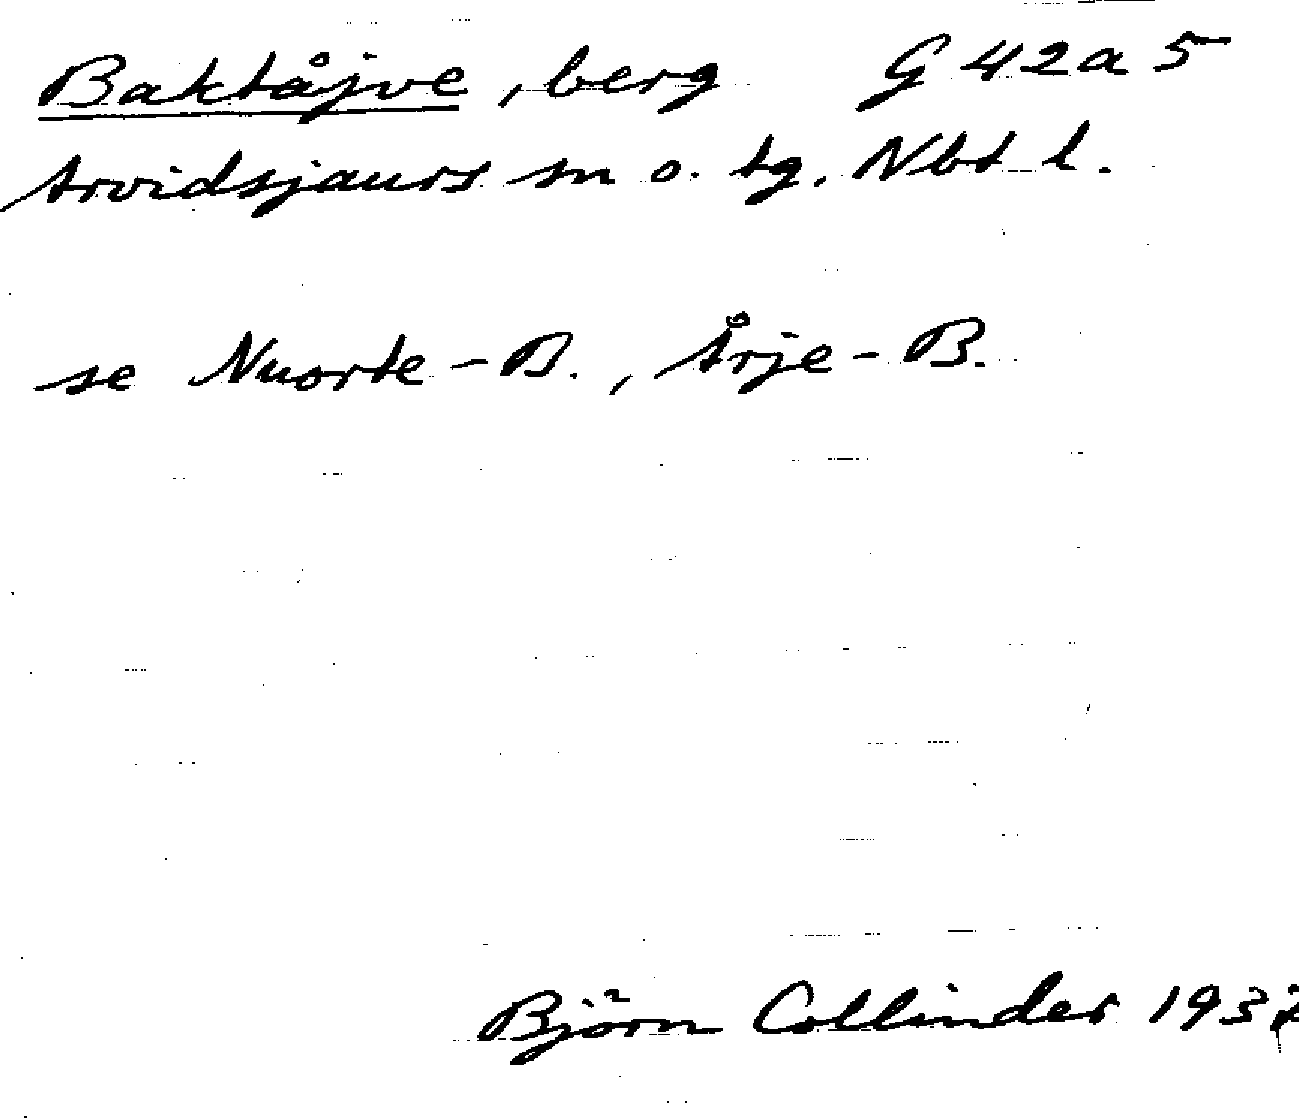 Baktåjve, berg G 42 a 5
Arvidsjaurs sn o. tg. Nbt l.
se Nuorte-B., Årje-B.
Björn Collinder